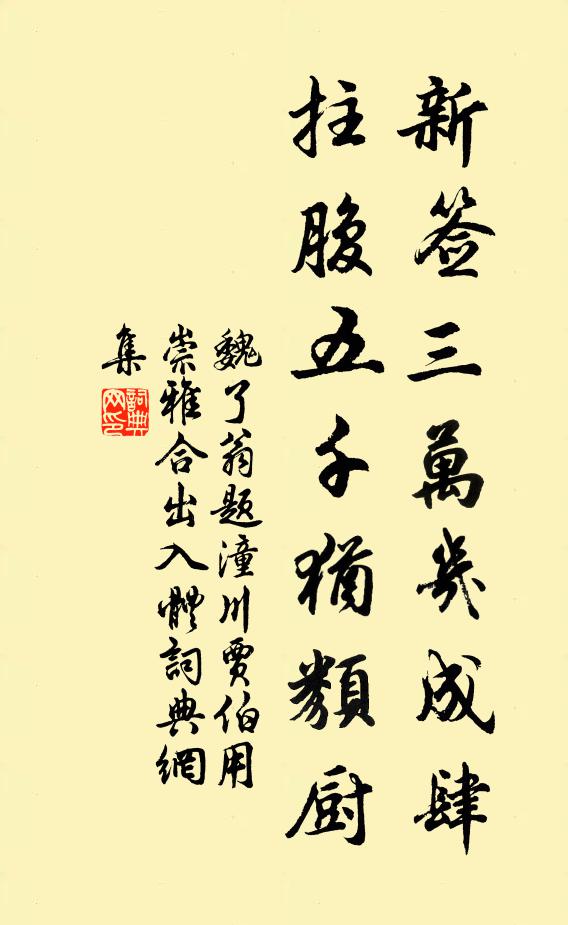 新签三萬幾成肆
拄腹五千猶類厨
魏了翁題潼川賈伯用
崇雅合出入體詞典網
集
詞典
网印